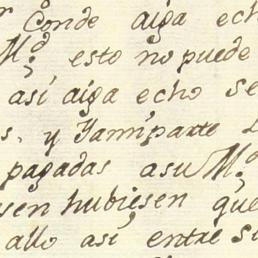 Conde aiga ech
M.d esto no puede
así aiga echo se
s, y Yamiparte
pagadas asu M.d
sen hubiesen que
allo así entre s